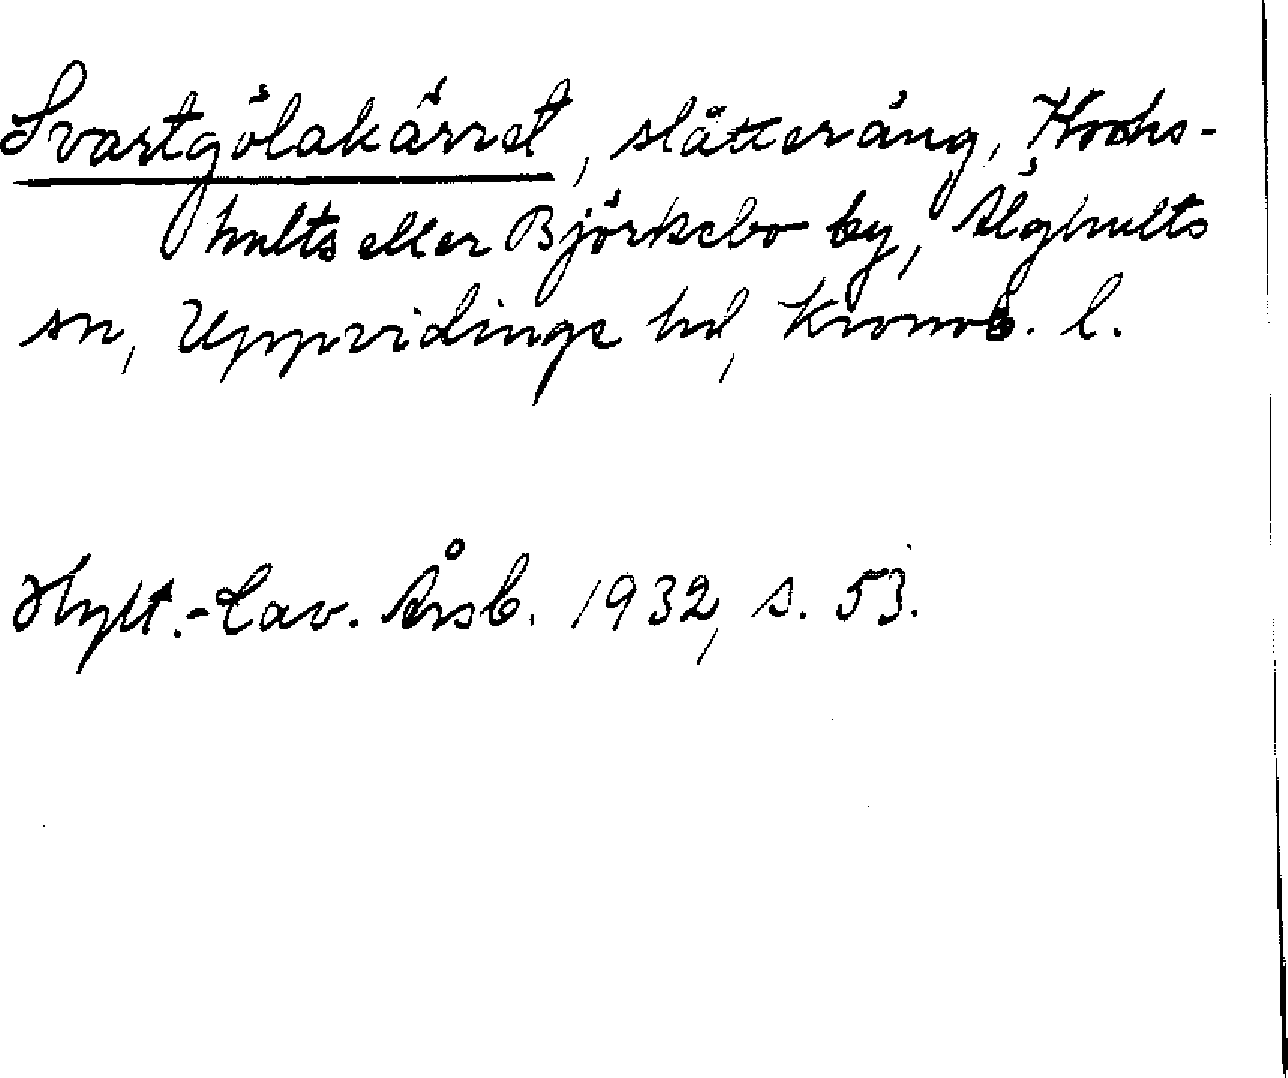 Svartgölakärret, slätteräng, Kochs-
hults eller Björkebo by, Älghults
sn, Uppvidinge hd, Kronob. l.
Hylt.-Cav. Årsb. 1932, s. 53.